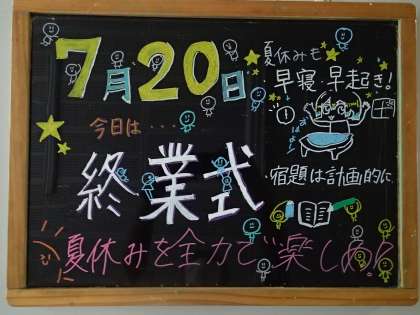 7月20日
今日は・・・
終業式
夏休みも
・早寝・早起き!
・宿題は計画的に
夏休みを全力で楽しめ!